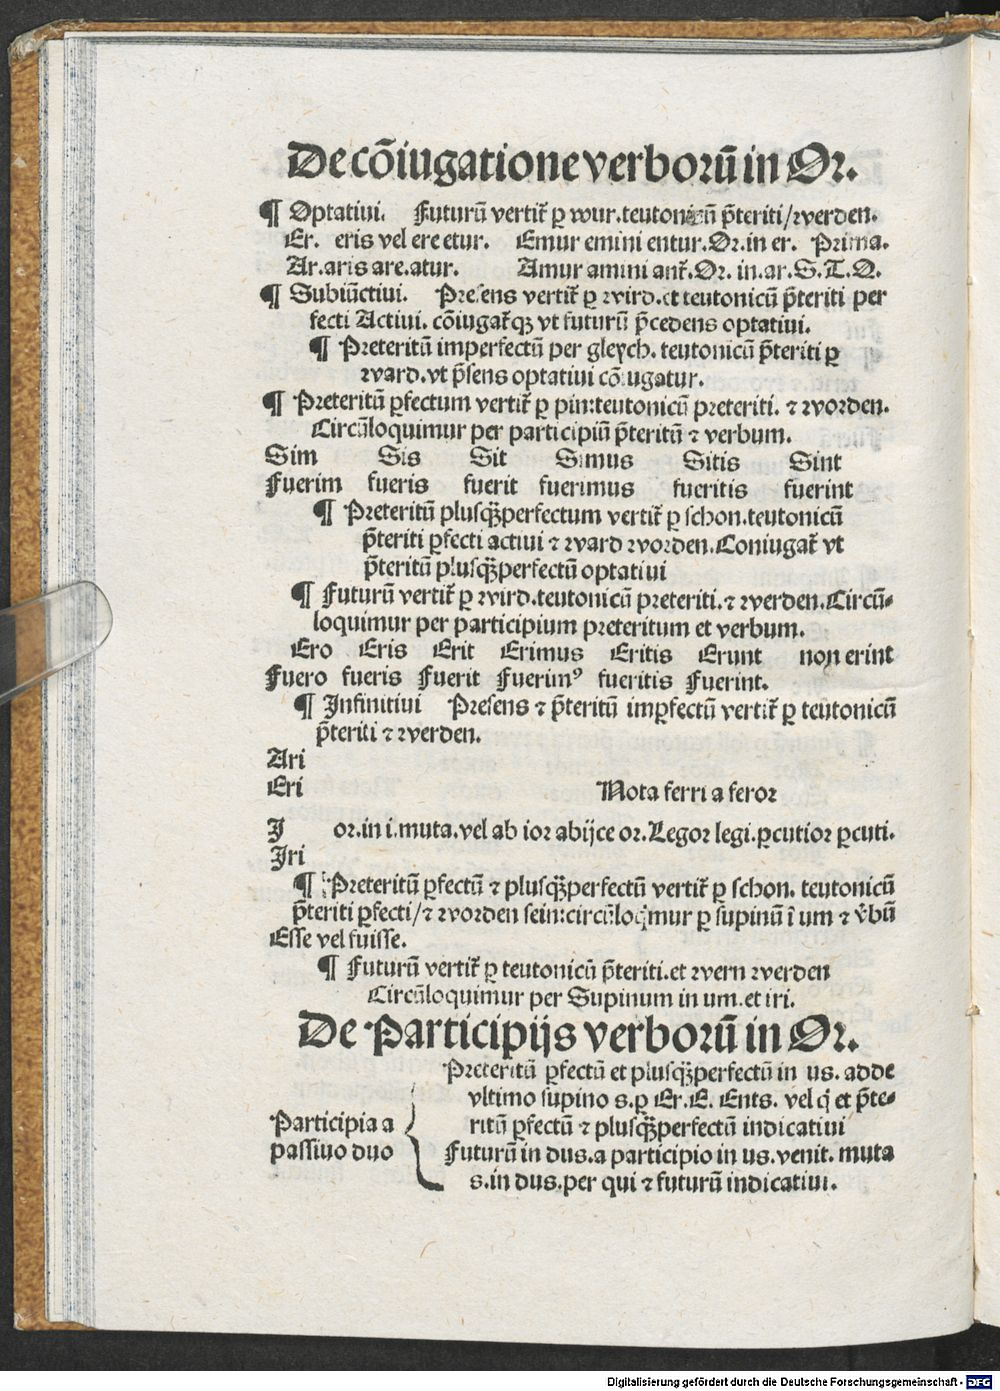 De cõiugatione verborũ in Or.
¶ Optatiui. Futurũ vertit̃ ꝑ wur. teutonicũ p̃teriti/ꝛverden.
Er. eris vel ere etur. Emur emini entur. Or. in er. Prima.
Ar. aris are. atur. Amur amini ant̃. Or. in. ar. S. T. Q.
¶ Subiũctiui. Presens vertit̃ ꝑ ꝛvird. et teutonicũ p̃teriti per
fecti Actiui. cõiugat̃qꝫ vt futurũ p̃cedens optatiui.
¶ Preteritũ imperfectũ per gleych. teutonicũ p̃teriti ꝑ
ꝛvard. vt p̃sens optatiui cõiugatur.
¶ Preteritũ ꝑfectum vertit̃ ꝑ pin: teutonicũ preteriti. ⁊ ꝛvorden.
Circũloquimur per participiũ p̃teritũ ⁊ verbum.
Sim Sis Sit Simus Sitis Sint
Fuerim fueris fuerit fuerimus fueritis fuerint
¶ Preteritũ plusqꝫ̃perfectum vertit̃ ꝑ schon. teutonicũ
p̃teriti ꝑfecti actiui ⁊ ꝛvard ꝛvorden. Coniugat̃ vt
p̃teritũ plusqꝫ̃perfectũ optatiui
¶ Futurũ vertit̃ ꝑ ꝛvird. teutonicũ preteriti. ⁊ ꝛverden. Circũ-
loquimur per participium preteritum et verbum.
Ero Eris Erit Erimus Eritis Erunt non erint
Fuero fueris Fuerit Fuerimꝰ fueritis Fuerint.
¶ Infinitiui Presens ⁊ p̃teritũ imꝑfectũ vertit̃ ꝑ teutonicũ
p̃teriti ⁊ ꝛverden.
Ari
Eri Nota ferri a feror
I or. in i. muta. vel ab ior abijce or. Legor legi. ꝑcutior ꝑcuti.
Iri
¶ Preteritũ ꝑfectũ ⁊ plusqꝫ̃perfectũ vertit̃ ꝑ schon. teutonicũ
p̃teriti ꝑfecti/⁊ ꝛvorden sein: circũloq̇mur ꝑ supinũ ĩ um ⁊ v̓bũ
Esse vel fuisse.
¶ Futurũ vertit̃ ꝑ teutonicũ p̃teriti. et ꝛvern ꝛverden
Circũloquimur per Supinum in um. et iri.
De Participijs verborũ in Or.
Preteritũ ꝑfectũ et plusqꝫ̃perfectũ in us. adde
vltimo supino s. ꝑ Er. E. Ents. vel q̇ et p̃te-
Participia a ritũ ꝑfectũ ⁊ plusqꝫ̃perfectũ indicatiui
passiuo duo Futurũ in dus. a participio in us. venit. muta
s. in dus. per qui ⁊ futurũ indicatiui.
Digitalisierung gefördert durch die Deutsche Forschungsgemeinschaft - DFG